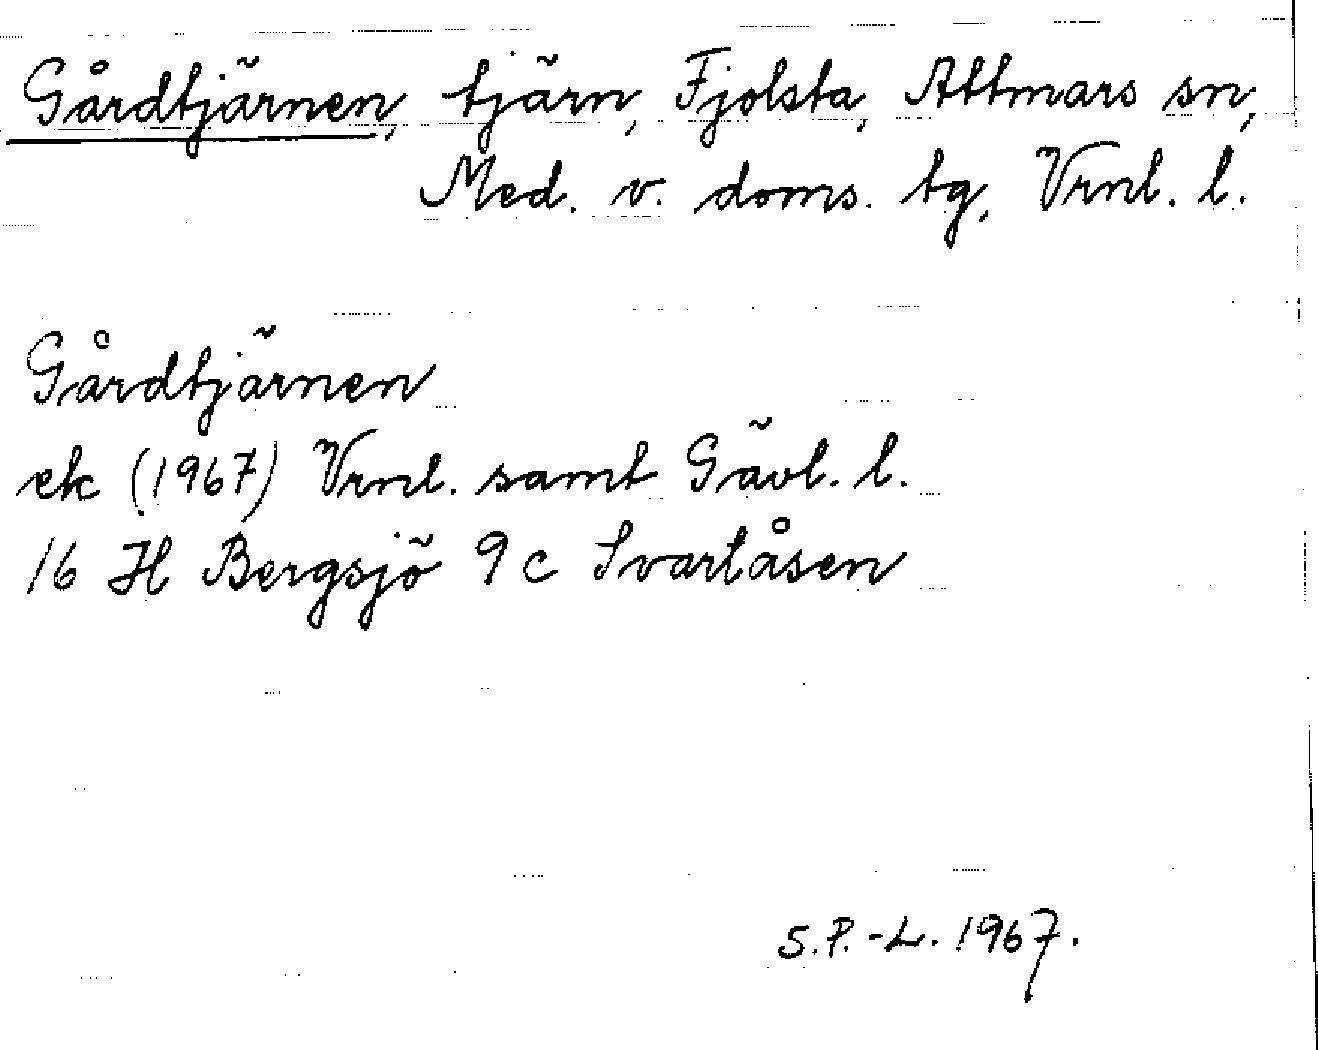 Gårdtjärnen, tjärn, Fjolsta, Attmars sn,
Med. v. doms. tg, Vrnl. l.
Gårdtjärnen
ek (1967) Vrnl. samt Gävl. l.
16 H Bergsjö 9 c Svartåsen
S.P.-L. 1967.